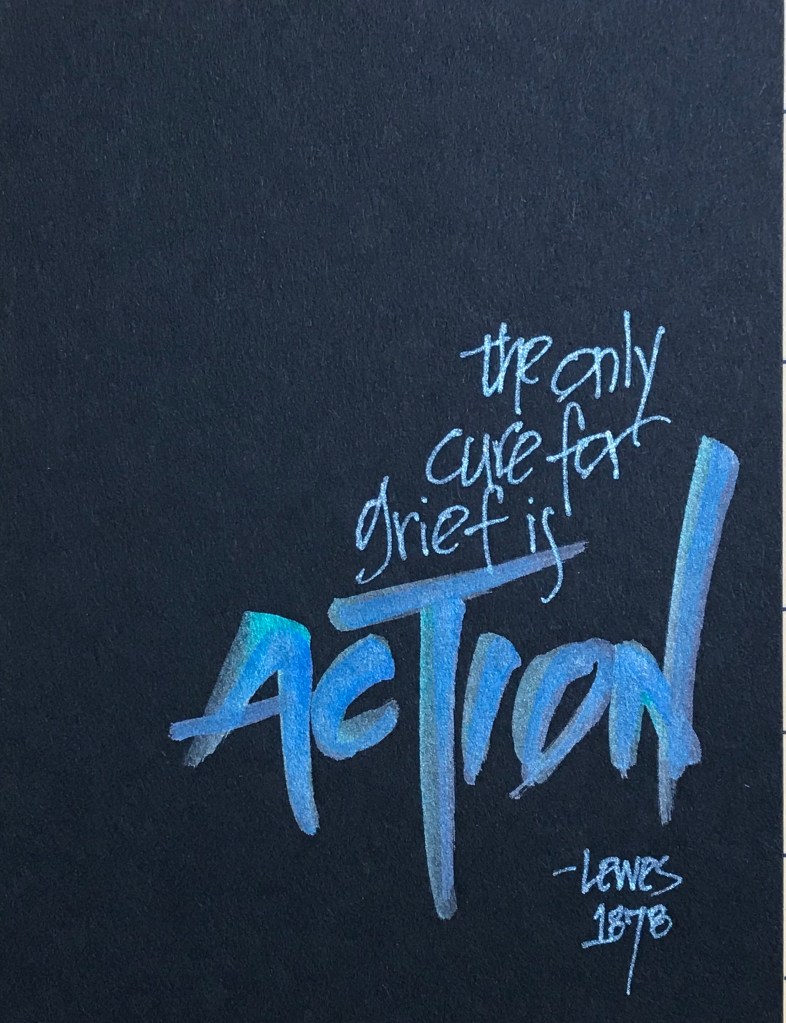 the only
cure for
grief is
ACTION
-Lewes
1878